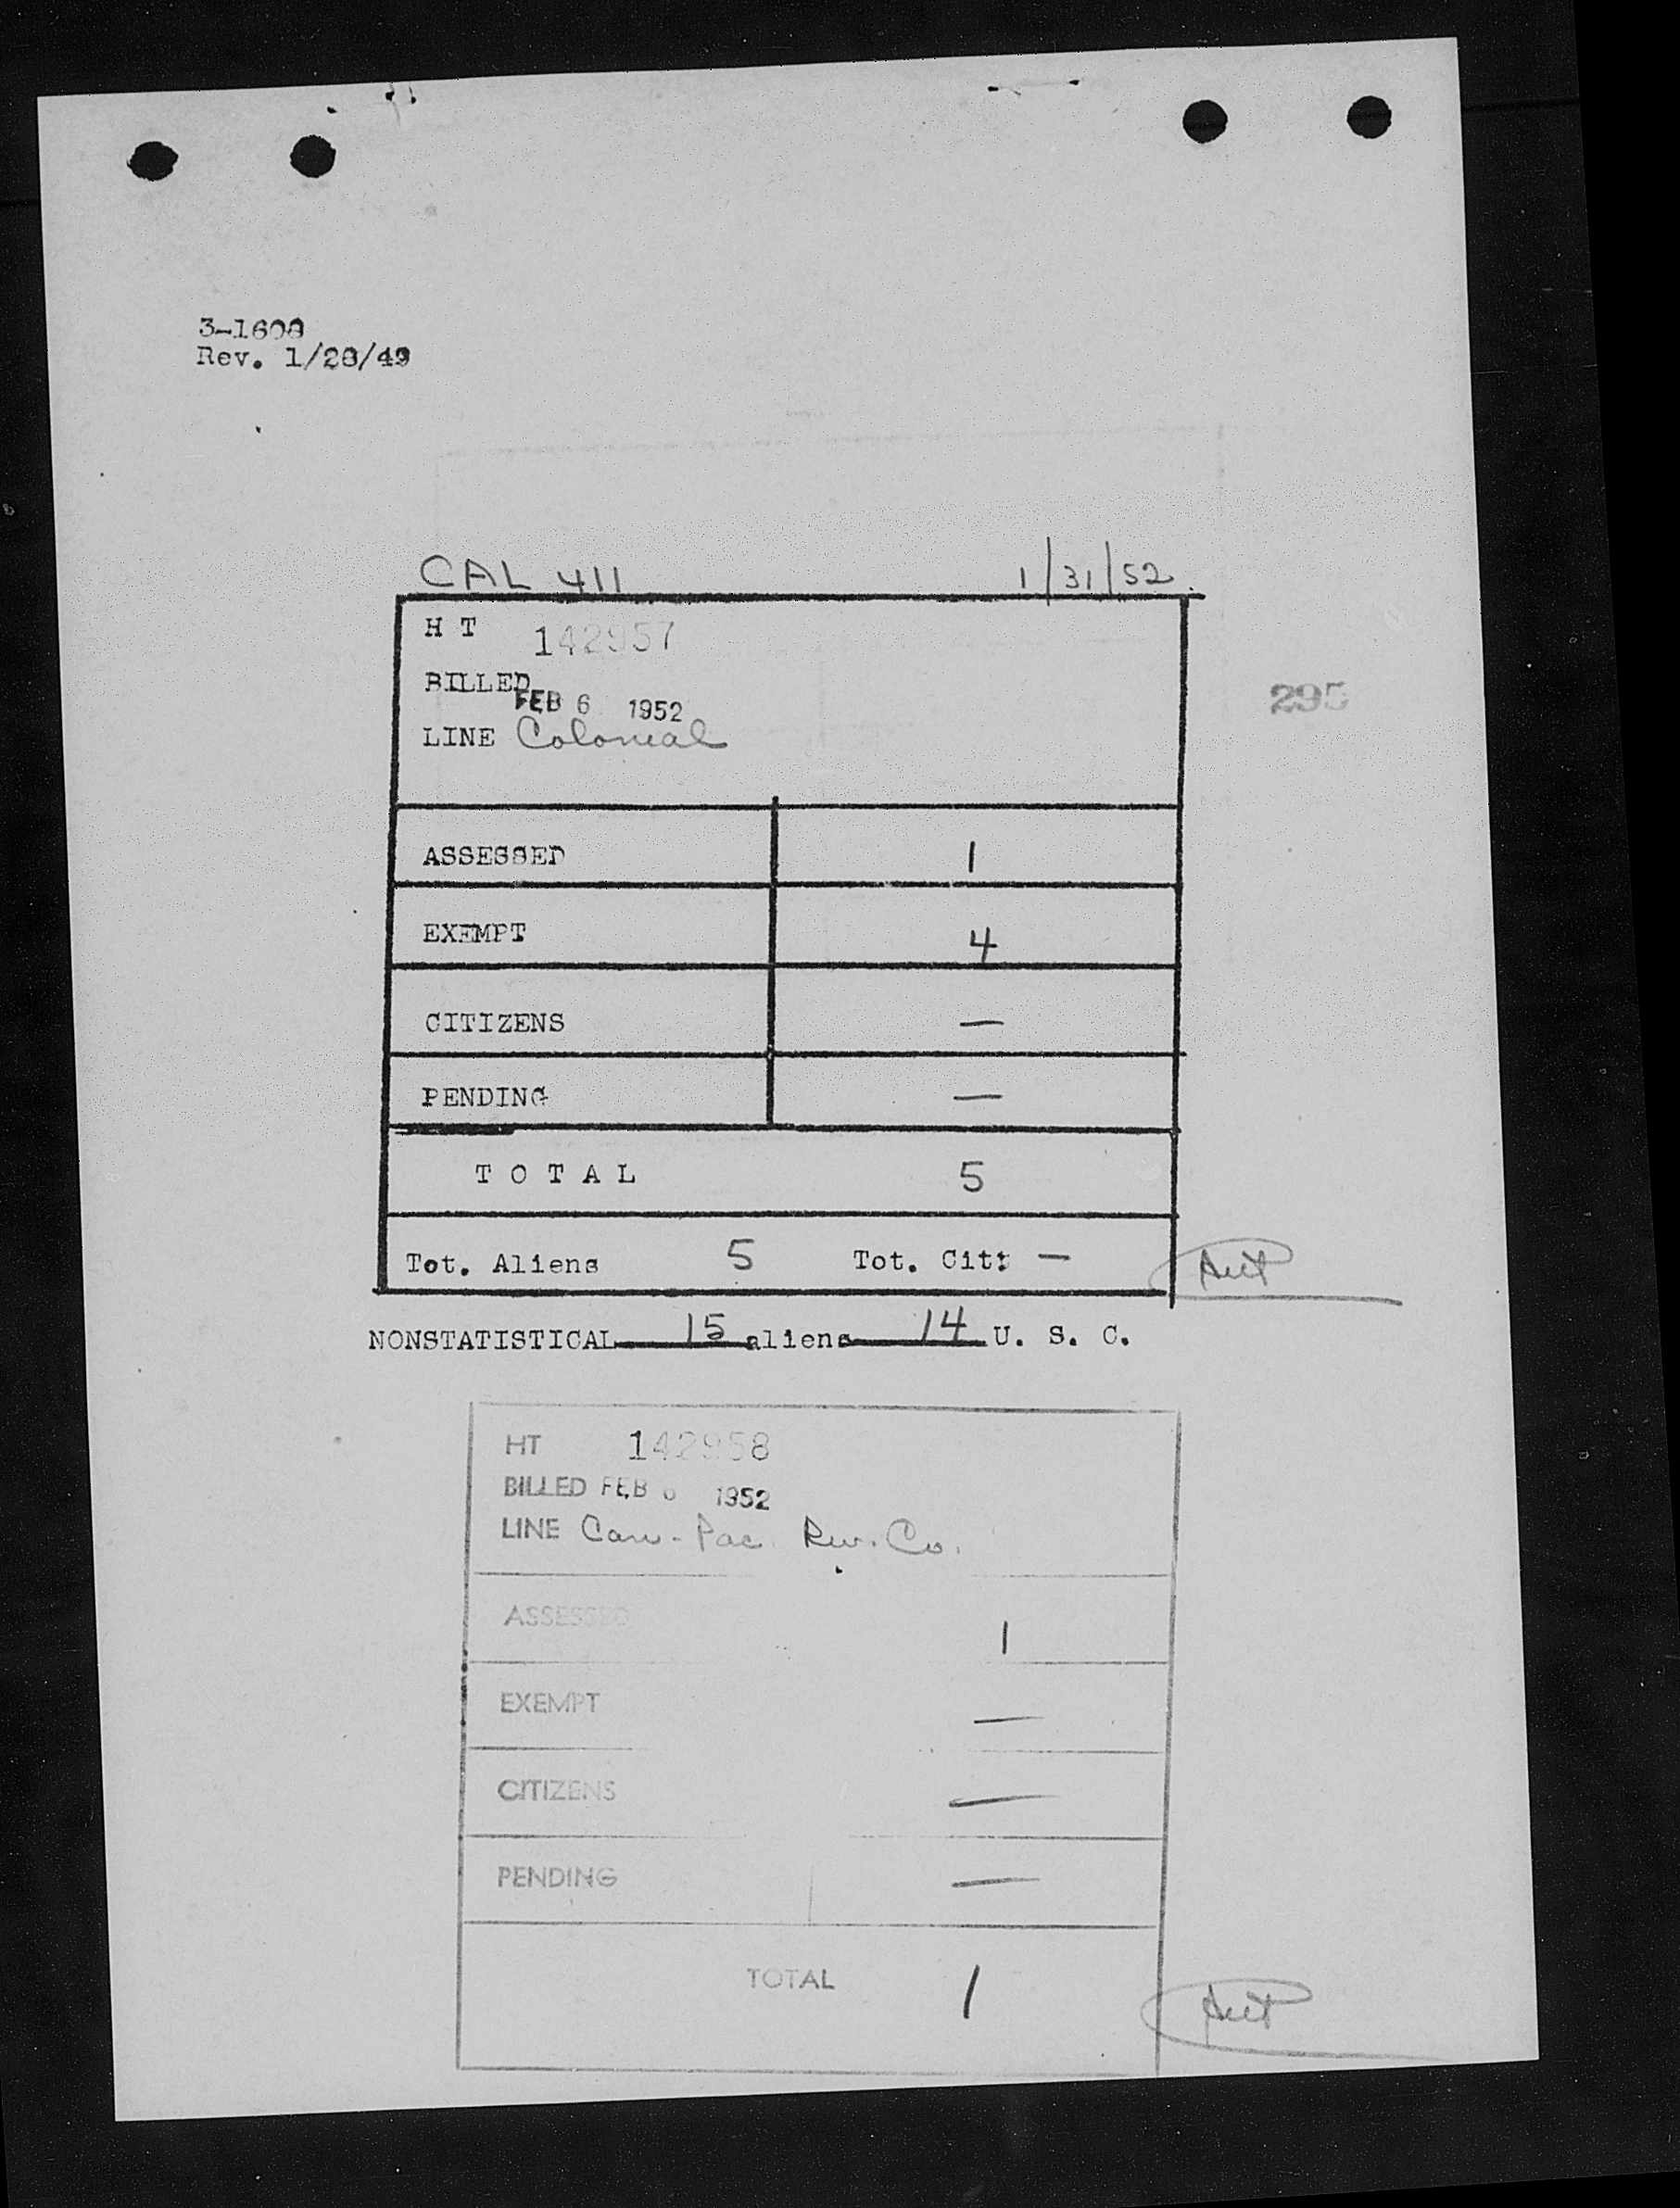 3-1608
Rev. 1/28/49
CAL 411 1/31/52
H T 142957
BILLED FEB 6 1952
LINE Colonial
295
ASSESSED 1
EXEMPT 4
CITIZENS —
PENDING —
T O T A L 5
Tot. Aliens 5 Tot. Cit: —
NONSTATISTICAL 15 aliens 14 U. S. C.
HT 142958
BILLED FEB 6 1952
LINE Can-Pac. Rw. Co.
ASSESSED 1
EXEMPT —
CITIZENS —
PENDING —
TOTAL 1